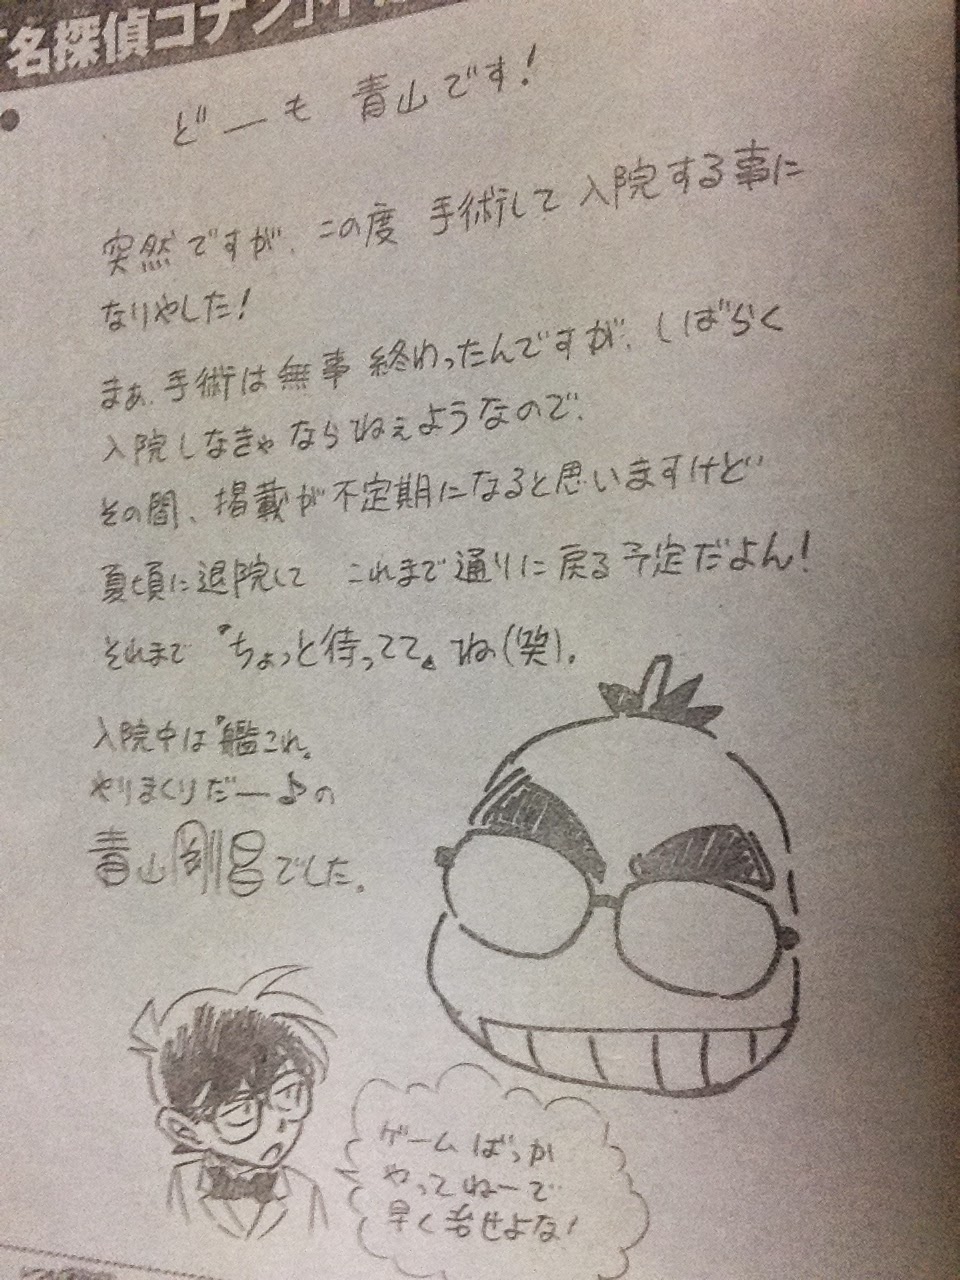 「名探偵コナン」不
どーも 青山です！
突然ですが、この度 手術して 入院する事に
なりやした！
まぁ、手術は無事 終わったんですが、しばらく
入院しなきゃならねぇようなので、
その間、掲載が不定期になると思いますけど
夏頃に退院して これまで通りに戻る予定だよん！
それまで『ちょっと待ってて』ね(笑)。
入院中は『艦これ』
やりまくりだー♪の
青山剛昌でした。
ゲームばっか
やってねーで
早く治せよな！